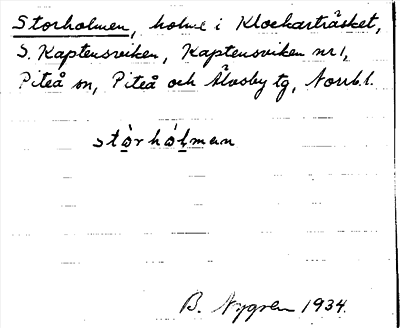 Storholmen, holme i Klockarträsket,
S. Kaptensviken, Kaptensviken nr 1,
Piteå sn, Piteå och Älvsby tg, Norrb. l.
stòrhólman
B. Nygren 1934.